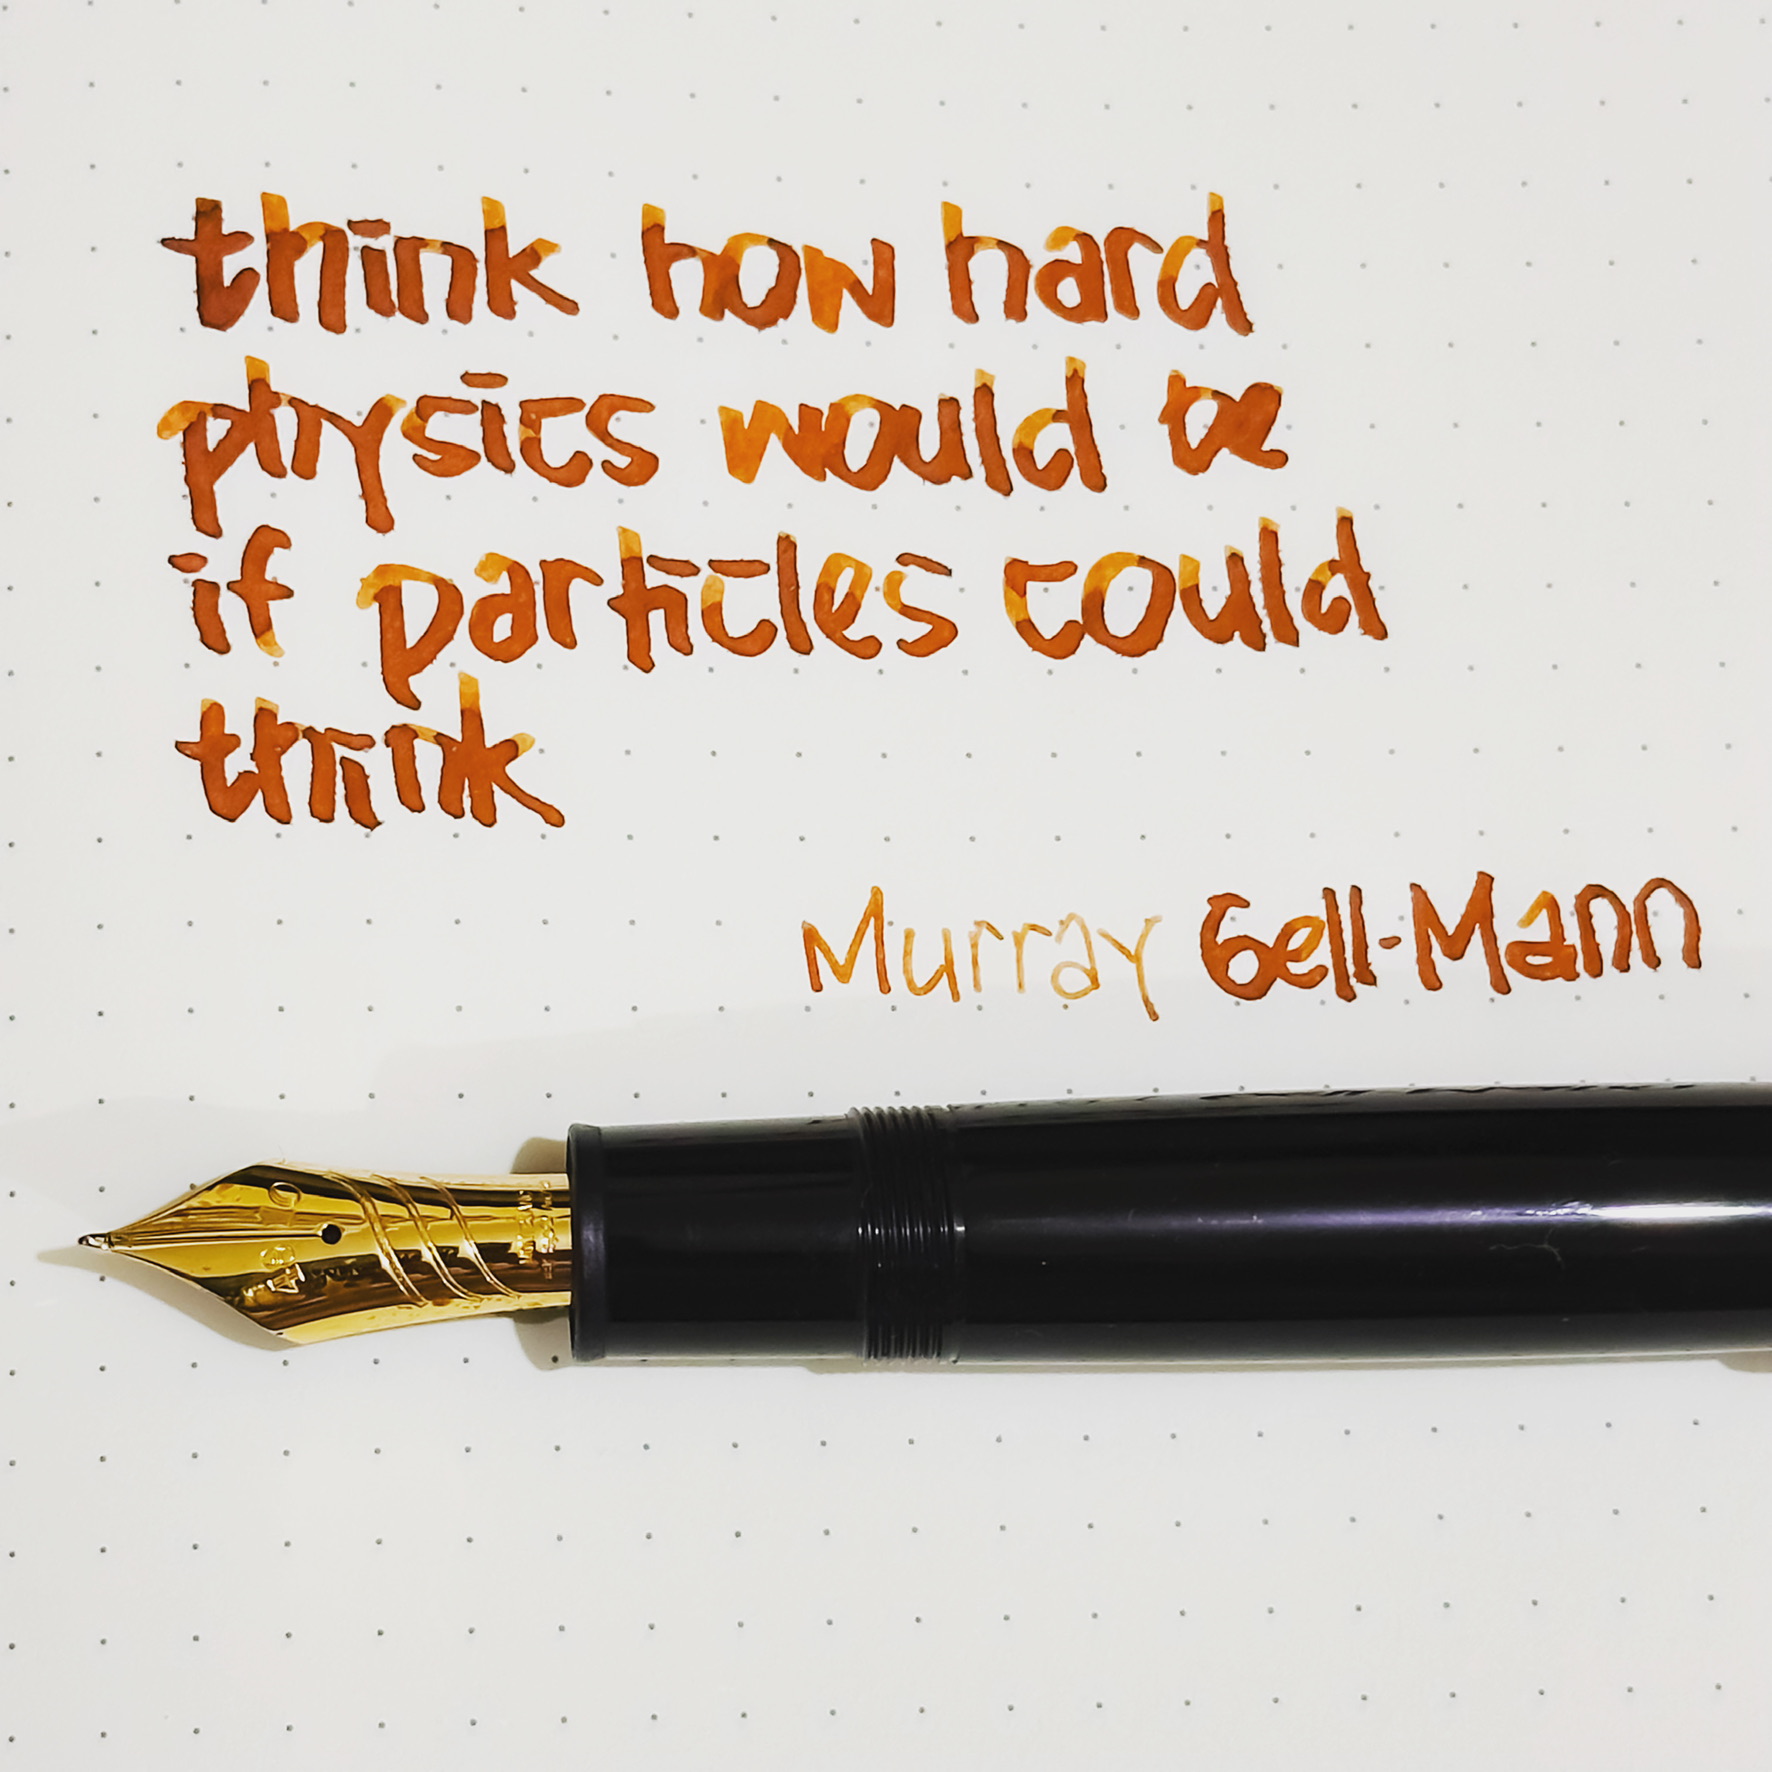 think how hard
physics would be
if particles could
think
Murray Gell-Mann